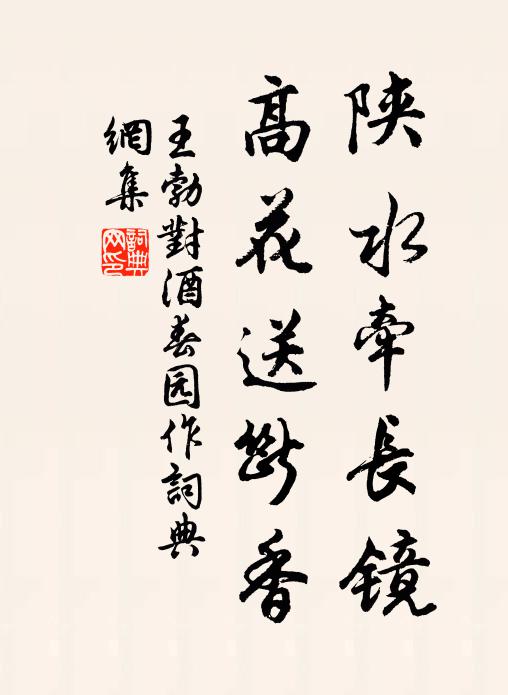 陕水牵長镜
高花送斷香
王勃對酒春园作詞典
網集
詞典
网印